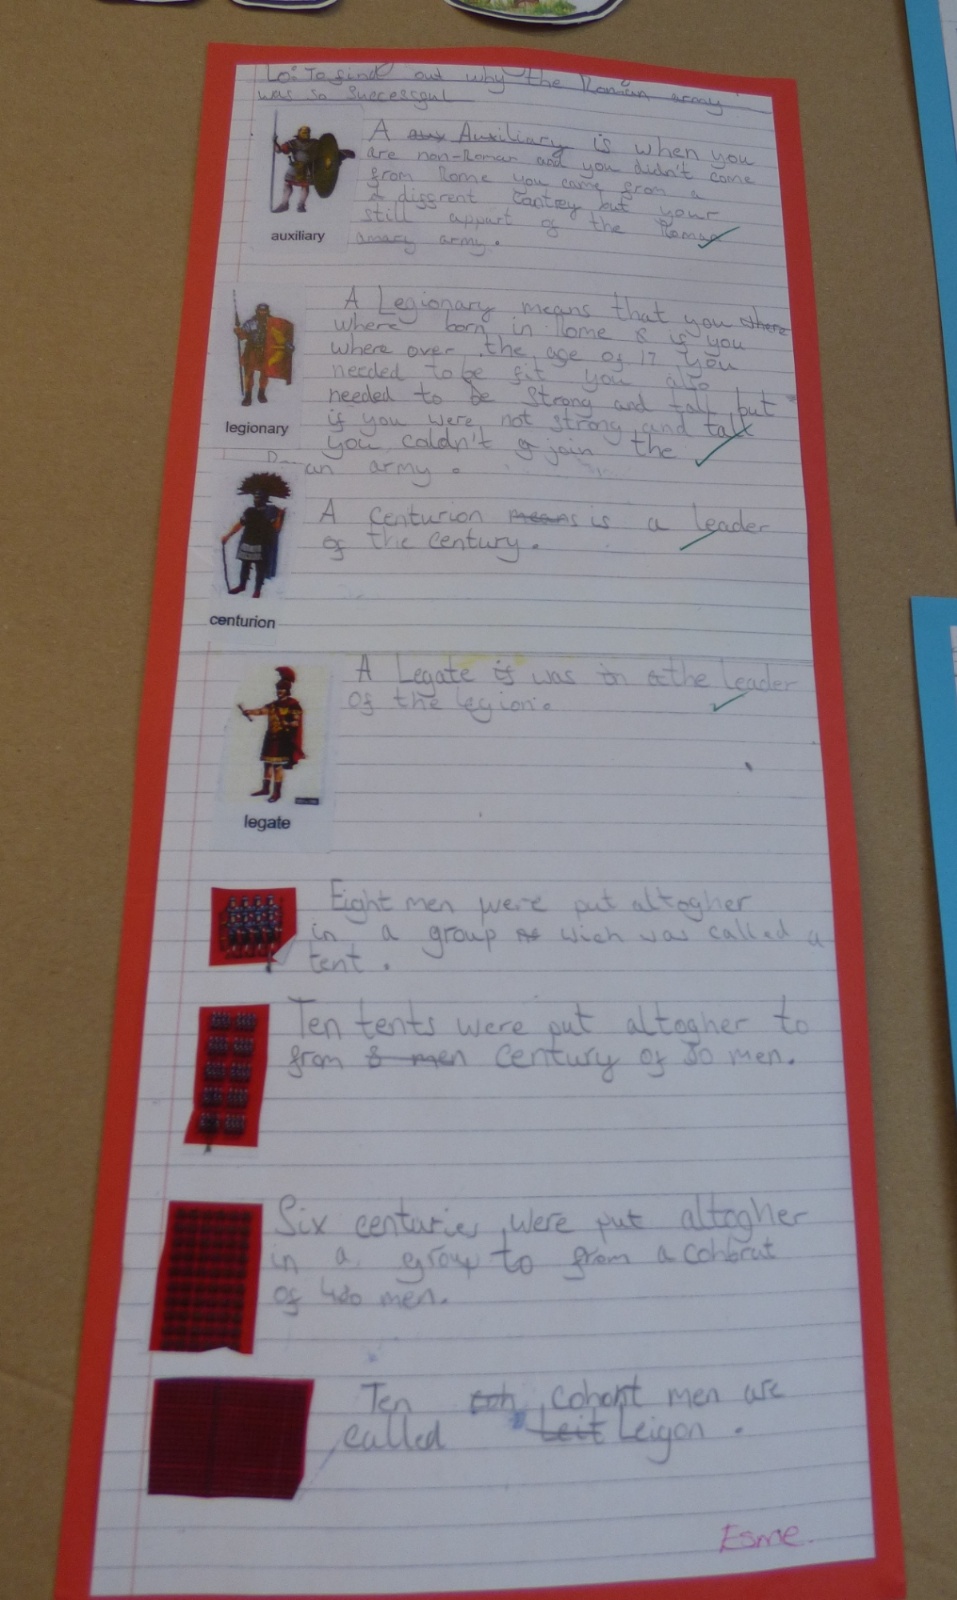 Lo: To find out why the Roman army
was so successful
A aux Auxiliary is when you
are non-Roman and you didn't come
from Rome you came from a
diffrent cantrey but your
still appart of the Roman
amary army.
auxiliary
A Legionary means that you there
where born in Rome & if you
where over the age of 17 you
needed to be fit you also
needed to be strong and tall but
if you were not strong and tall
you couldn't join the
an army.
legionary
A centurion means is a leader
of the century.
centurion
A Legate is was in a the leader
of the legion.
legate
Eight men were put altogher
in a group wich was called a
tent.
Ten tents were put altogher to
from 8 men century of 80 men.
Six centuries were put altogher
in a group to from a cohbrut
of 480 men.
Ten coh cohort men are
called Leit Leigon.
Esme.